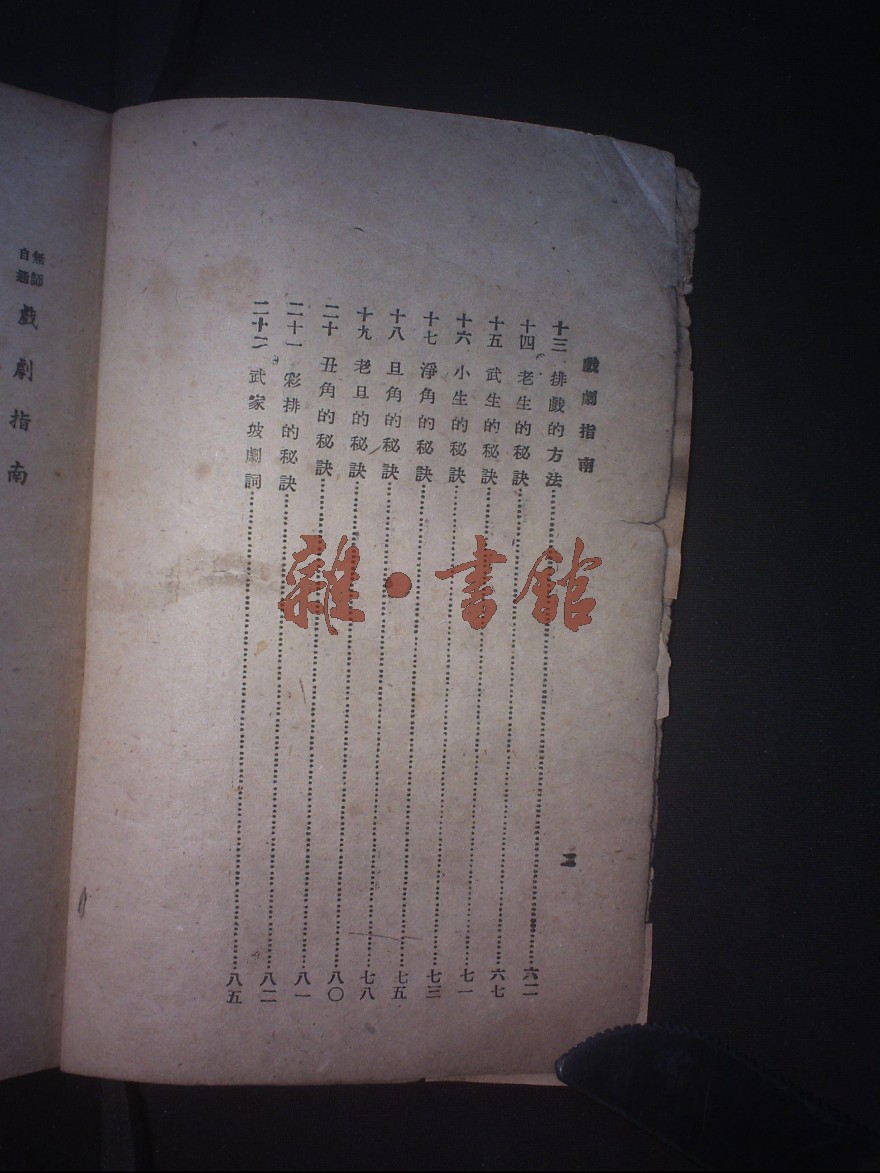 戲劇指南
二
十三 排戲的方法……六二
十四 老生的秘訣……六七
十五 武生的秘訣……七一
十六 小生的秘訣……七三
十七 淨角的秘訣……七五
十八 旦角的秘訣……七八
十九 老旦的秘訣……八〇
二十 丑角的秘訣……八一
二十一 彩排的秘訣……八二
二十二 武家坡劇詞……八五
無師自通
戲劇指南
雜·書館